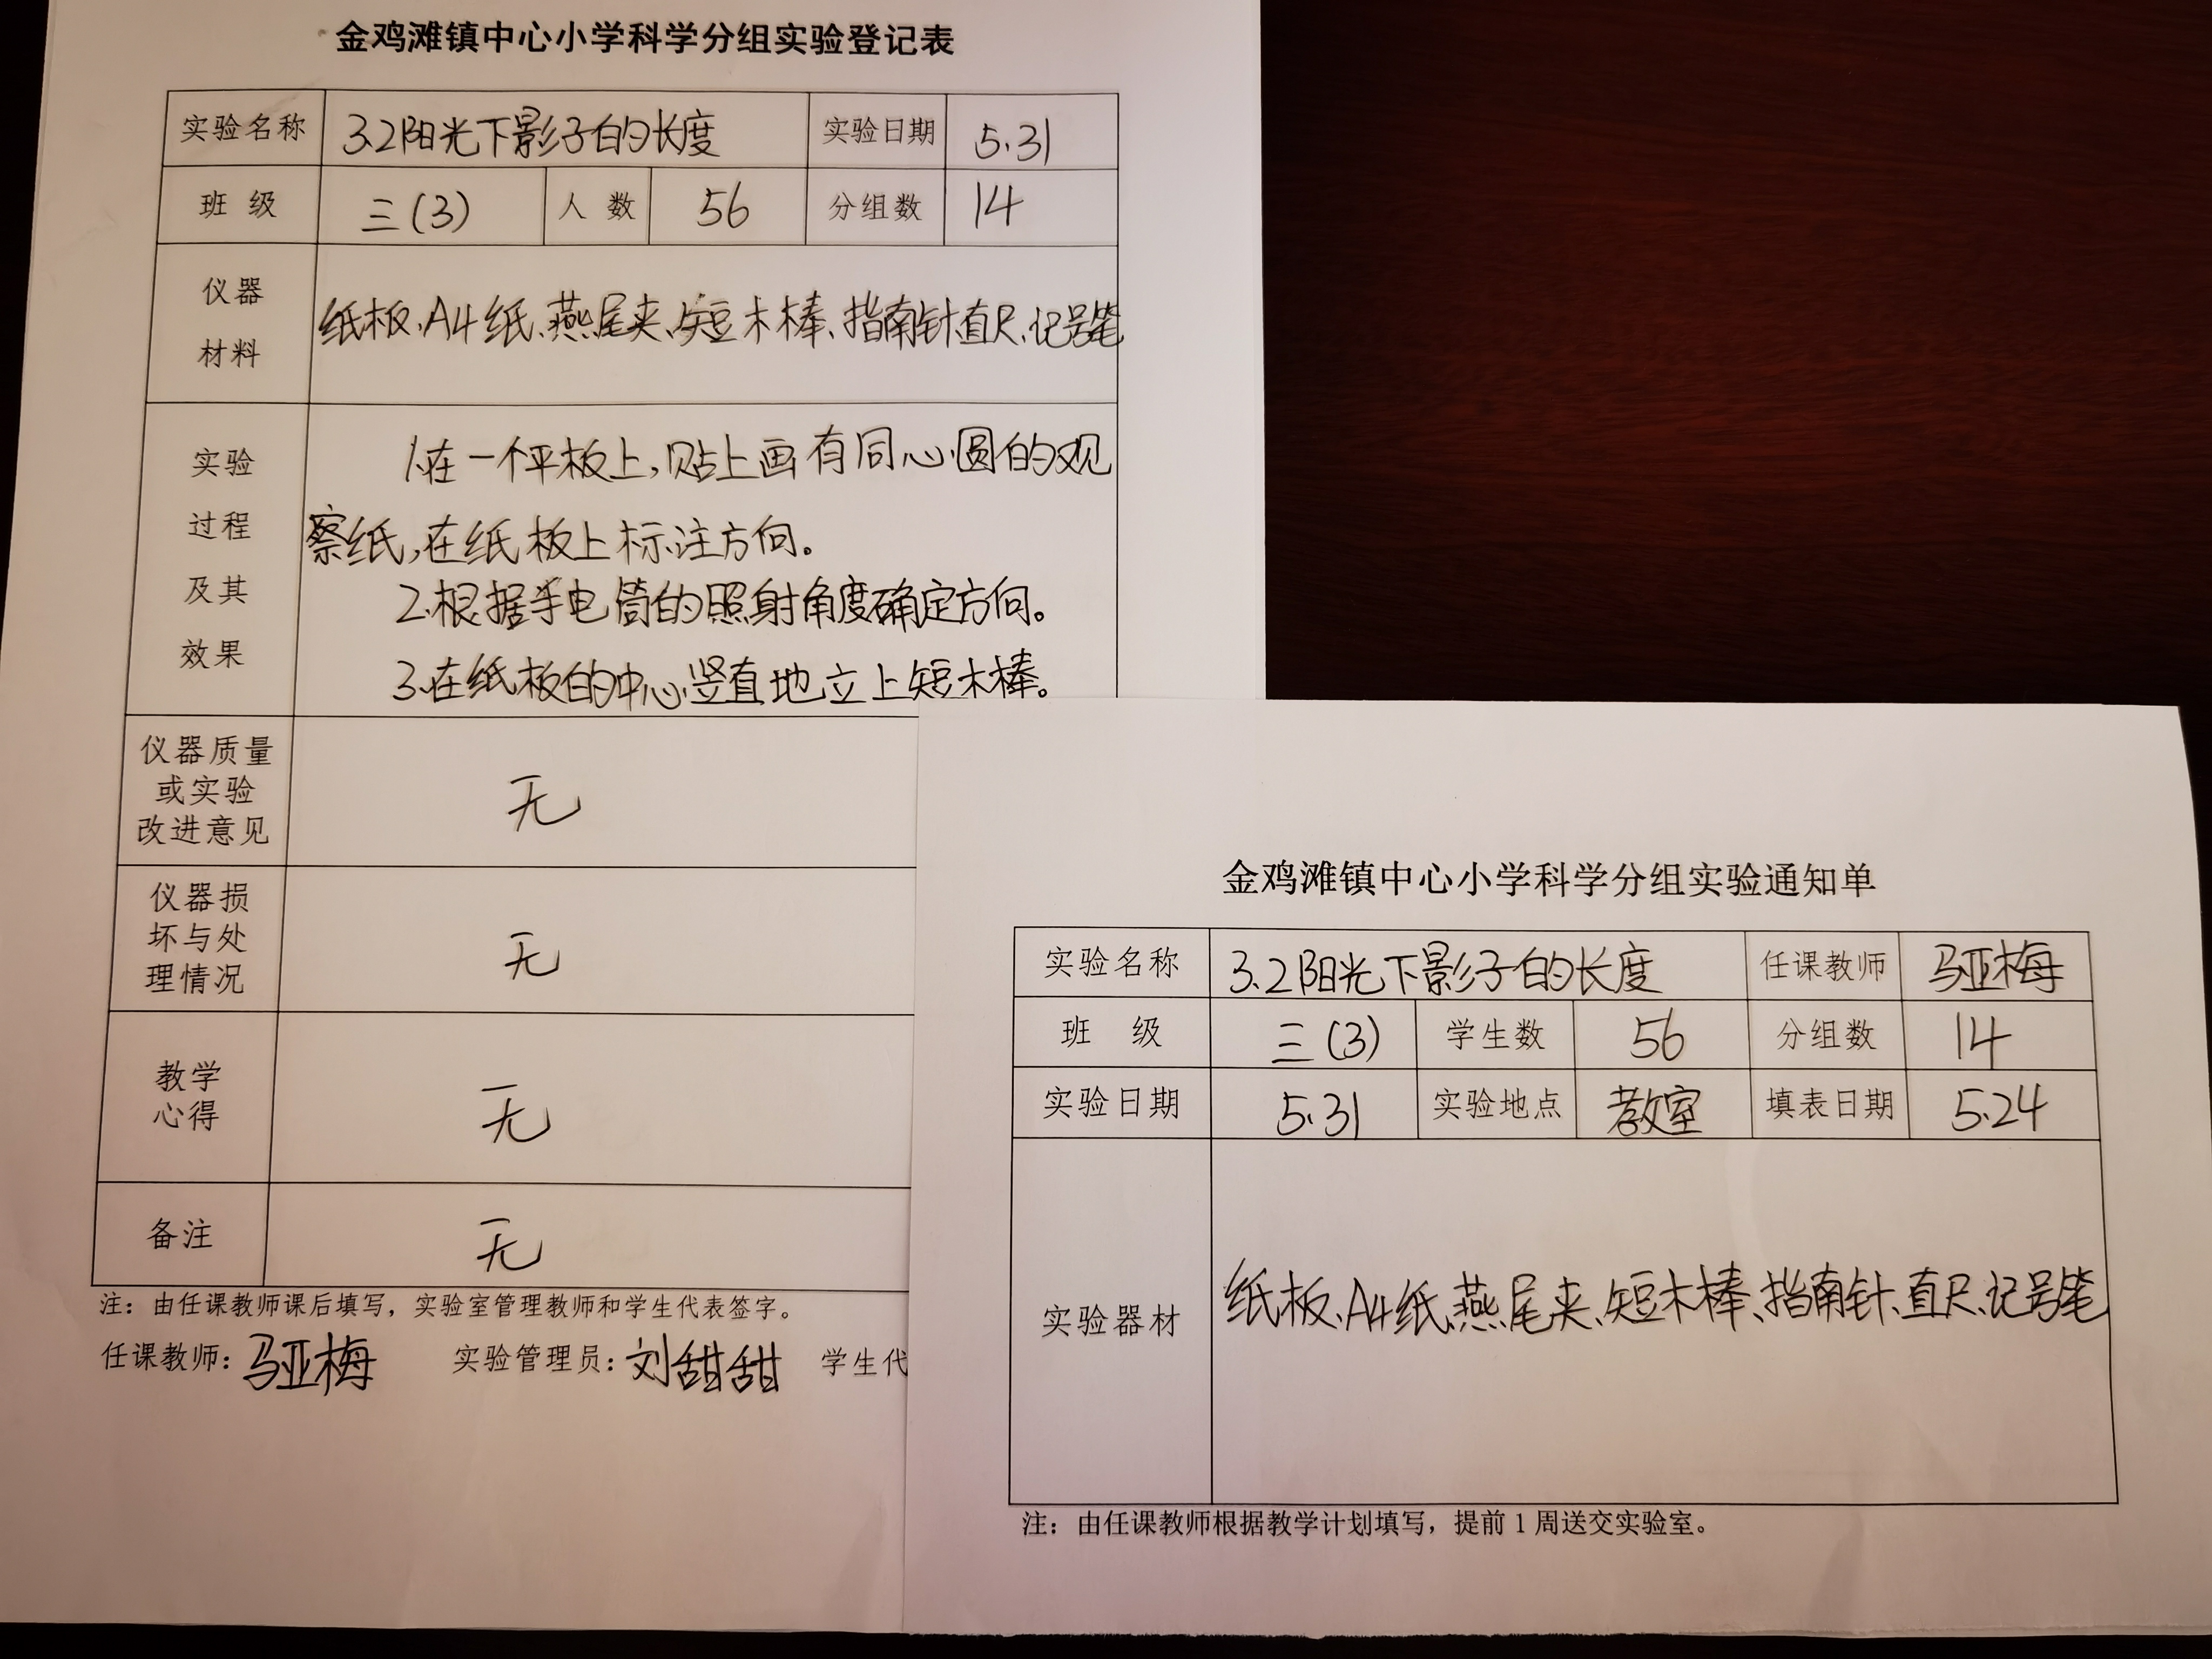 金鸡滩镇中心小学科学分组实验登记表
实验名称 3.2阳光下影子的长度 实验日期 5.31
班级 三(3) 人数 56 分组数 14
仪器
材料
纸板、A4纸、燕尾夹、短木棒、指南针、直尺、记号笔
实验
过程
及其
效果
1.在一个平板上,贴上画有同心圆的观
察纸,在纸板上标注方向。
2.根据手电筒的照射角度确定方向。
3.在纸板的中心竖直地立上短木棒。
仪器质量
或实验
改进意见
无
仪器损
坏与处
理情况
无
教学
心得
无
备注 无
注：由任课教师课后填写，实验室管理教师和学生代表签字。
任课教师：马亚梅 实验管理员：刘甜甜 学生代
金鸡滩镇中心小学科学分组实验通知单
实验名称 3.2阳光下影子的长度 任课教师 马亚梅
班级 三(3) 学生数 56 分组数 14
实验日期 5.31 实验地点 教室 填表日期 5.24
实验器材 纸板、A4纸、燕尾夹、短木棒、指南针、直尺、记号笔
注：由任课教师根据教学计划填写，提前1周送交实验室。